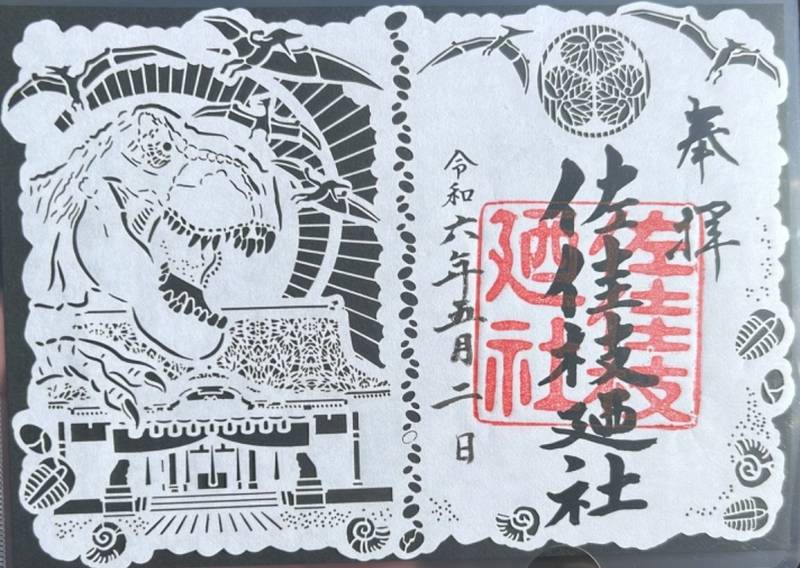 奉拝
佐佳枝廼社
佐佳枝
廼社
令和六年五月二日